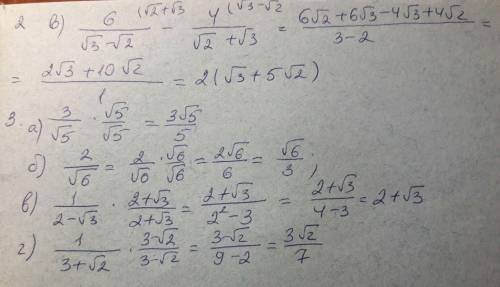 2 в) 6/(√3-√2) (√2+√3 - 4/(√2+√3) (√3-√2 = (6√2+6√3-4√3+4√2)/(3-2) =
= (2√3+10√2)/1 = 2(√3+5√2)
3. а) 3/√5 · √5/√5 = 3√5/5
б) 2/√6 = 2/√6 · √6/√6 = 2√6/6 = √6/3 ;
в) 1/(2-√3) · (2+√3)/(2+√3) = (2+√3)/(2²-3) = (2+√3)/(4-3) = 2+√3
г) 1/(3+√2) · (3-√2)/(3-√2) = (3-√2)/(9-2) = 3√2/7